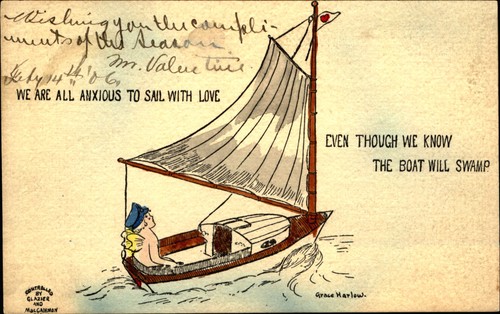 Wishing you the compli-
ments of the Season
Mr. Valentine
Feby 14th '06
WE ARE ALL ANXIOUS TO SAIL WITH LOVE
EVEN THOUGH WE KNOW
THE BOAT WILL SWAMP
Grace Harlow.
CONTROLLED
BY
GLAZIER
AND